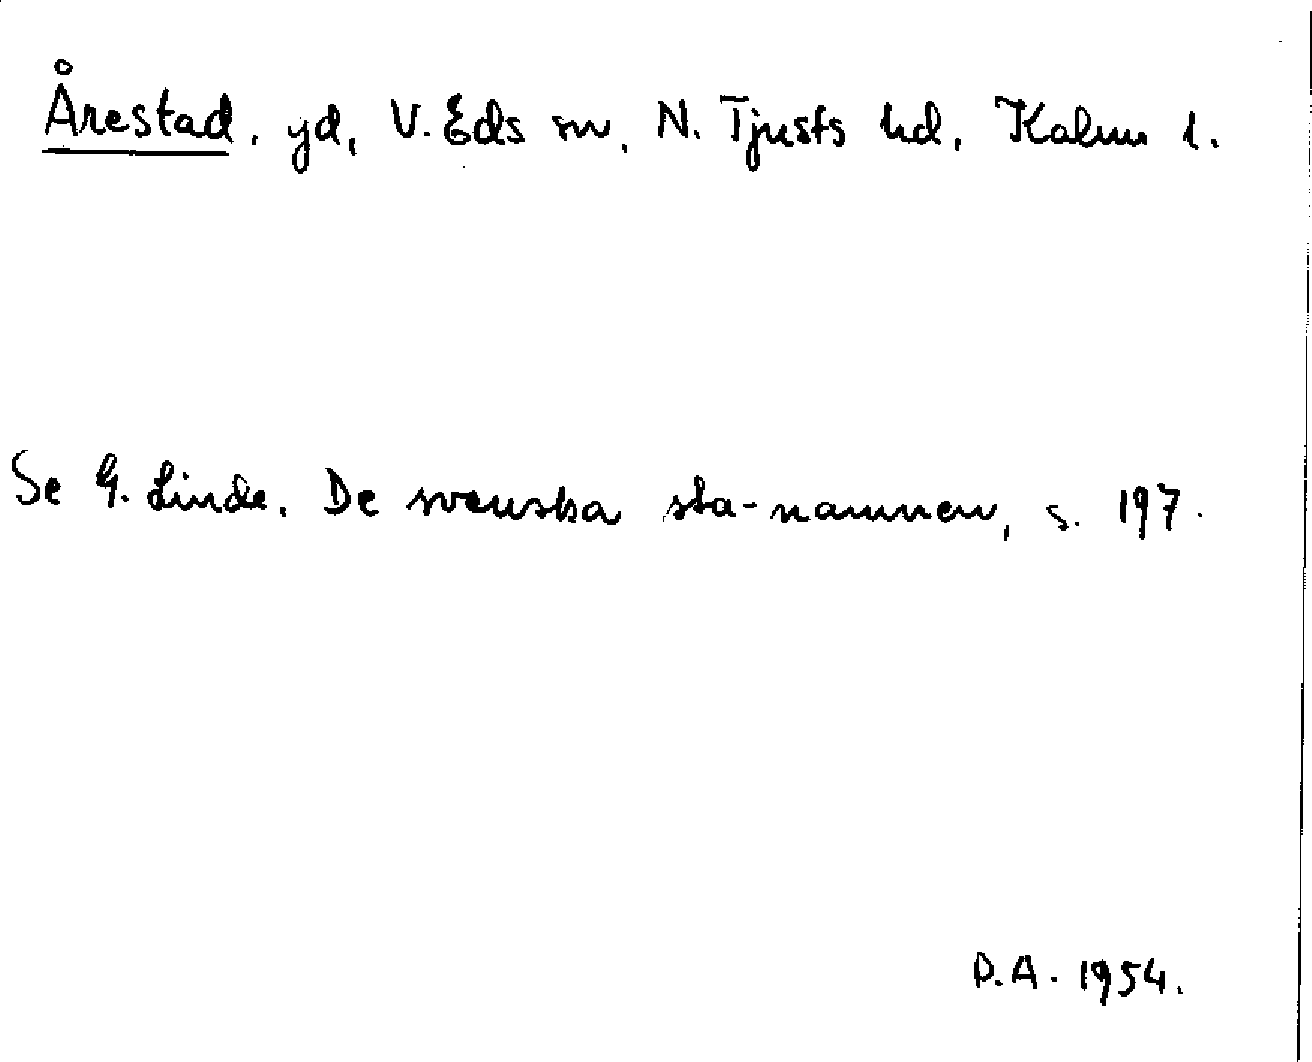 Årestad, gd, V. Eds sn, N. Tjusts hd, Kalm. l.
Se G. Linde, De svenska sta-namnen, s. 197.
D.A. 1954.